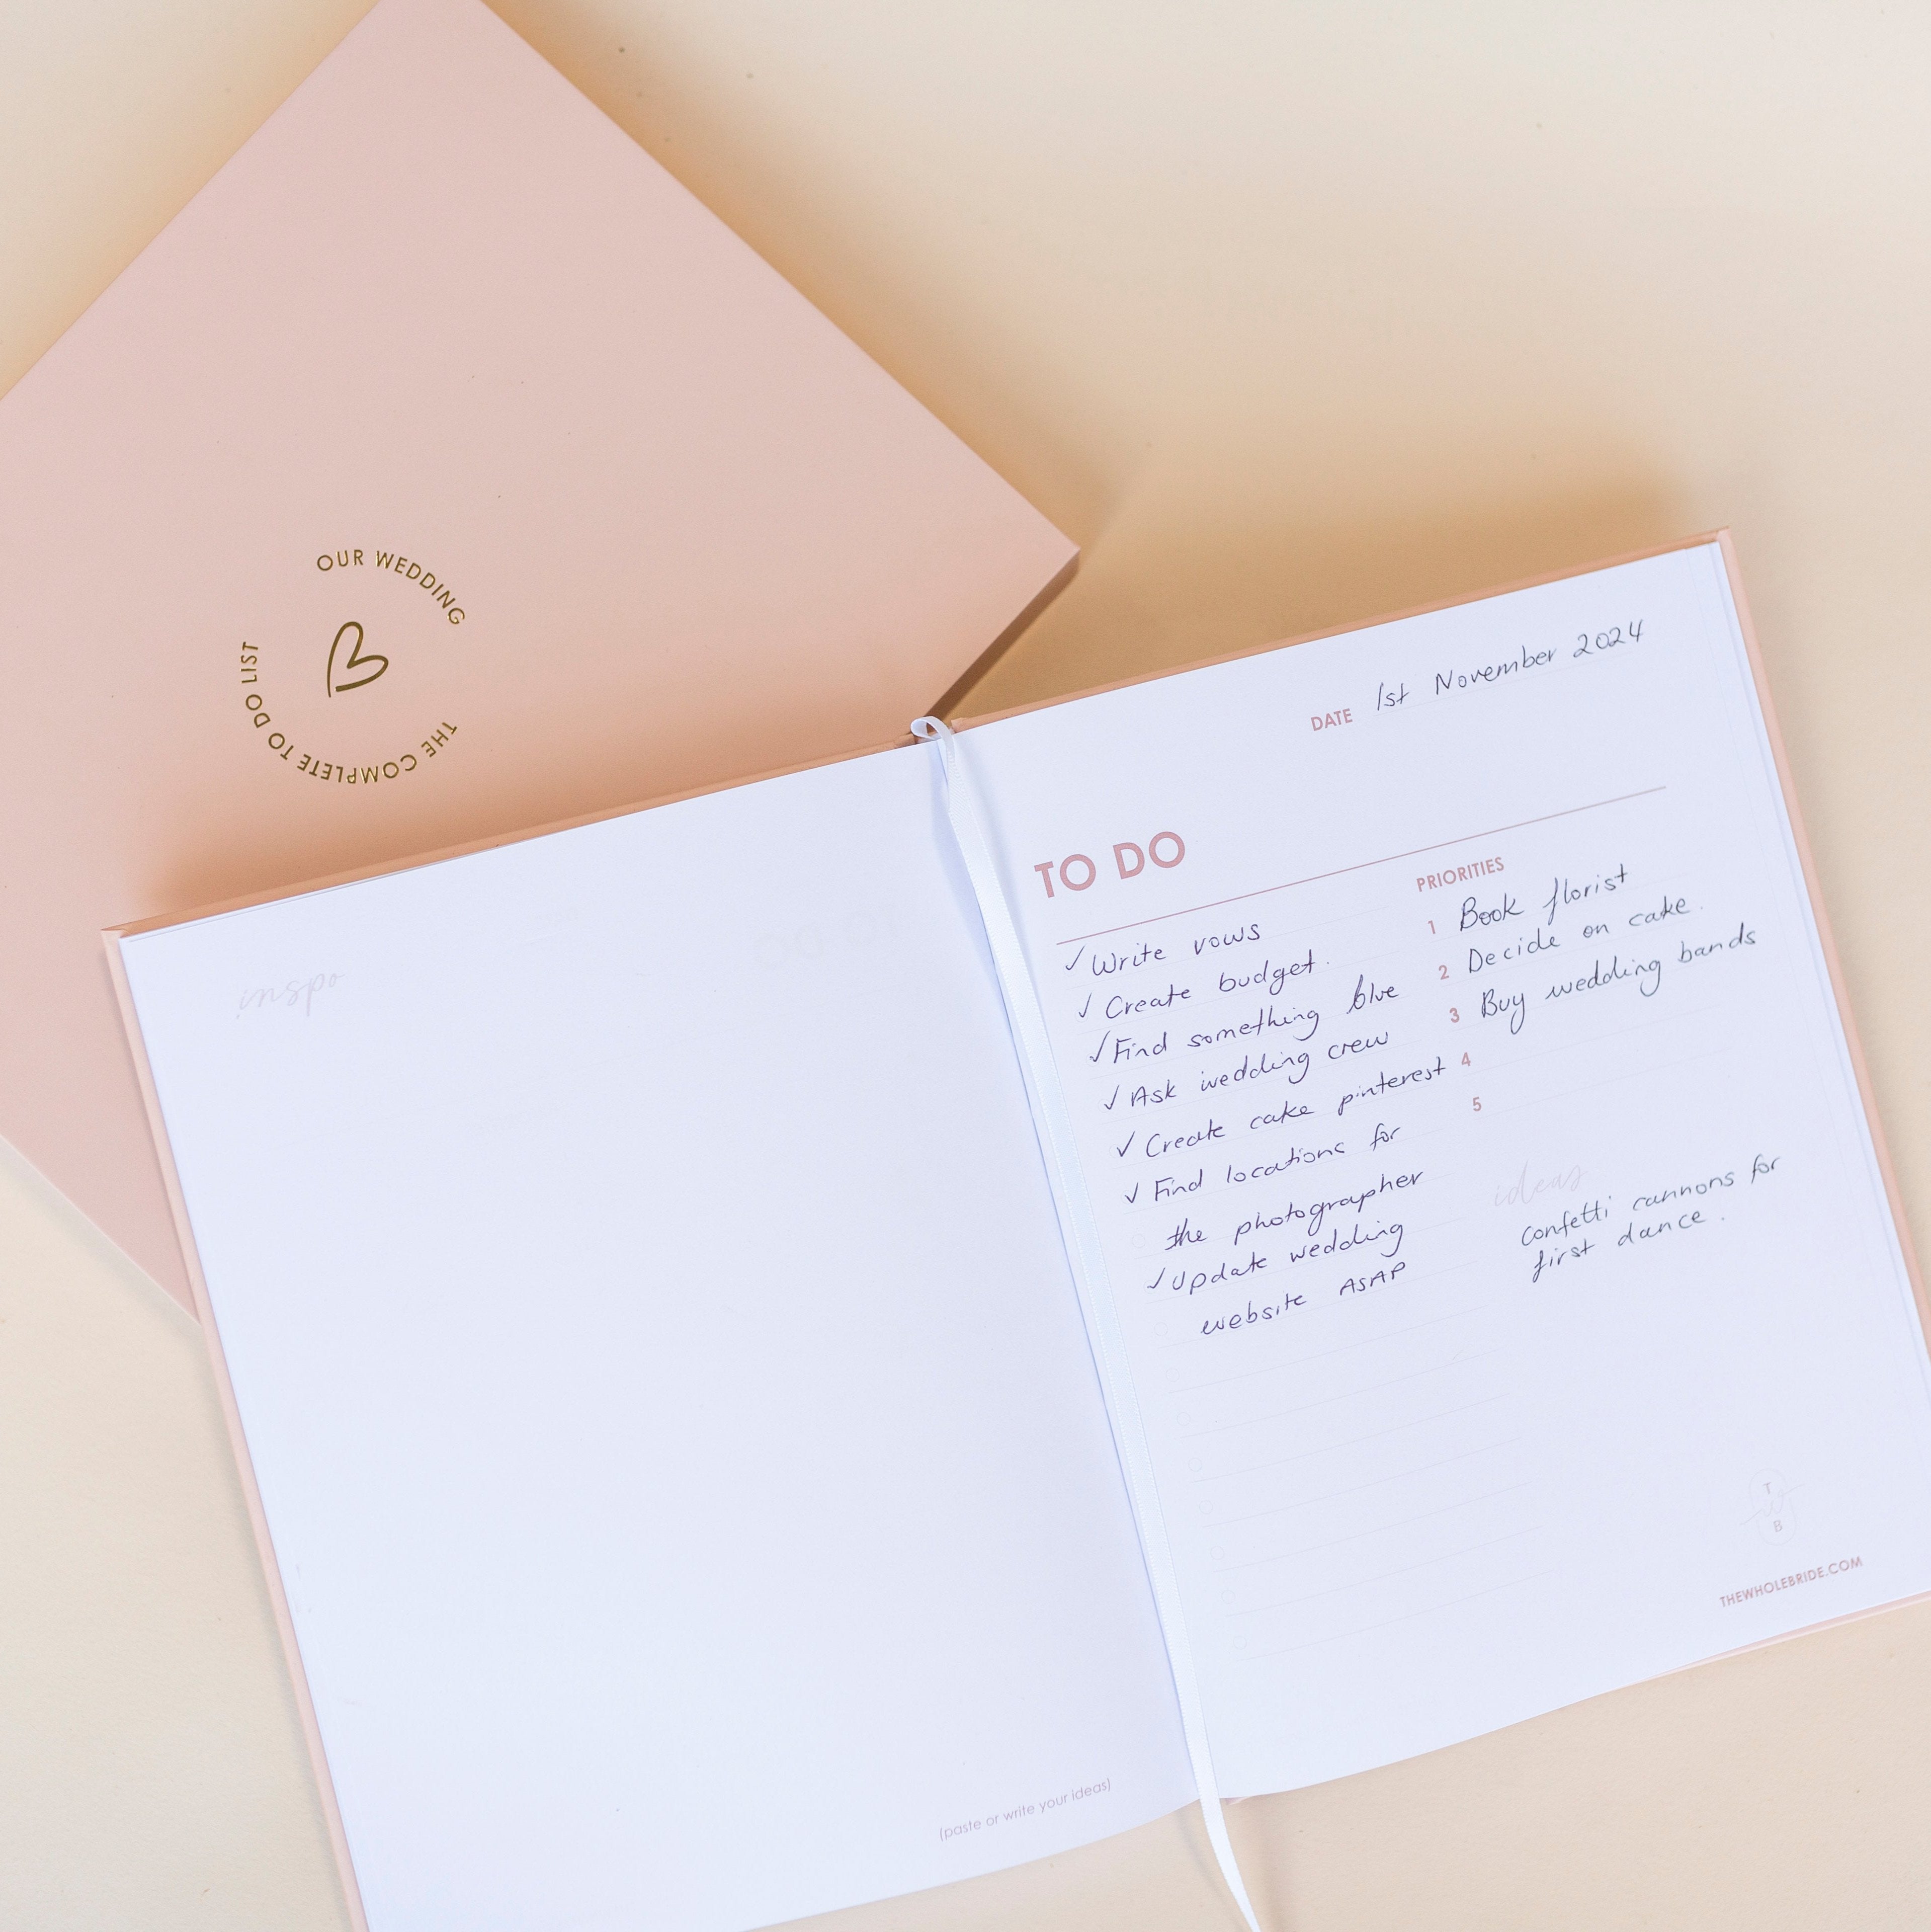 OUR WEDDING
THE COMPLETE TO DO LIST
inspo
(paste or write your ideas)
DATE 1st November 2024
TO DO
✓ Write vows
✓ Create budget.
✓ Find something blue
✓ Ask wedding crew
✓ Create cake pinterest
✓ Find locations for
the photographer
✓ Update wedding
website ASAP
PRIORITIES
1 Book florist
2 Decide on cake.
3 Buy wedding bands
4
5
ideas
Confetti cannons for
first dance.
T
B
THEWHOLEBRIDE.COM